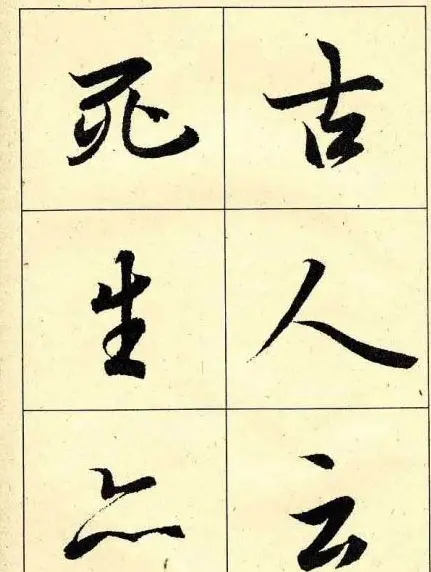 古人云
死生亦